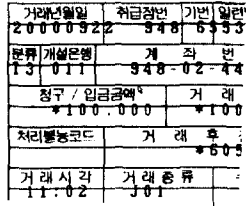 거래년월일 취급점번 기번 일련
20000922 948 6553
분류 개설은행 계 좌 번
13 011 948-02-44
청구 / 입금금액 거 래
*100.000 *100
처리불능코드 거 래 후
*609
거래시각 거래종류
11:02 J01